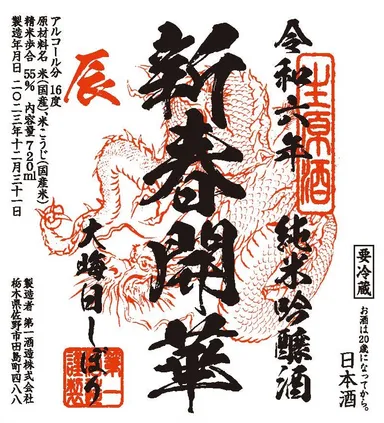 令和六年 純米吟醸酒
生原酒
要冷蔵
お酒は20歳になってから。
日本酒
新春開華
大晦日しぼり
第一謹製
辰
アルコール分 16度
原材料名 米(国産)・米こうじ(国産米)
精米歩合 55% 内容量720ml
製造年月日 二〇二三年十二月三十一日
製造者 第一酒造株式会社
栃木県佐野市田島町四八八